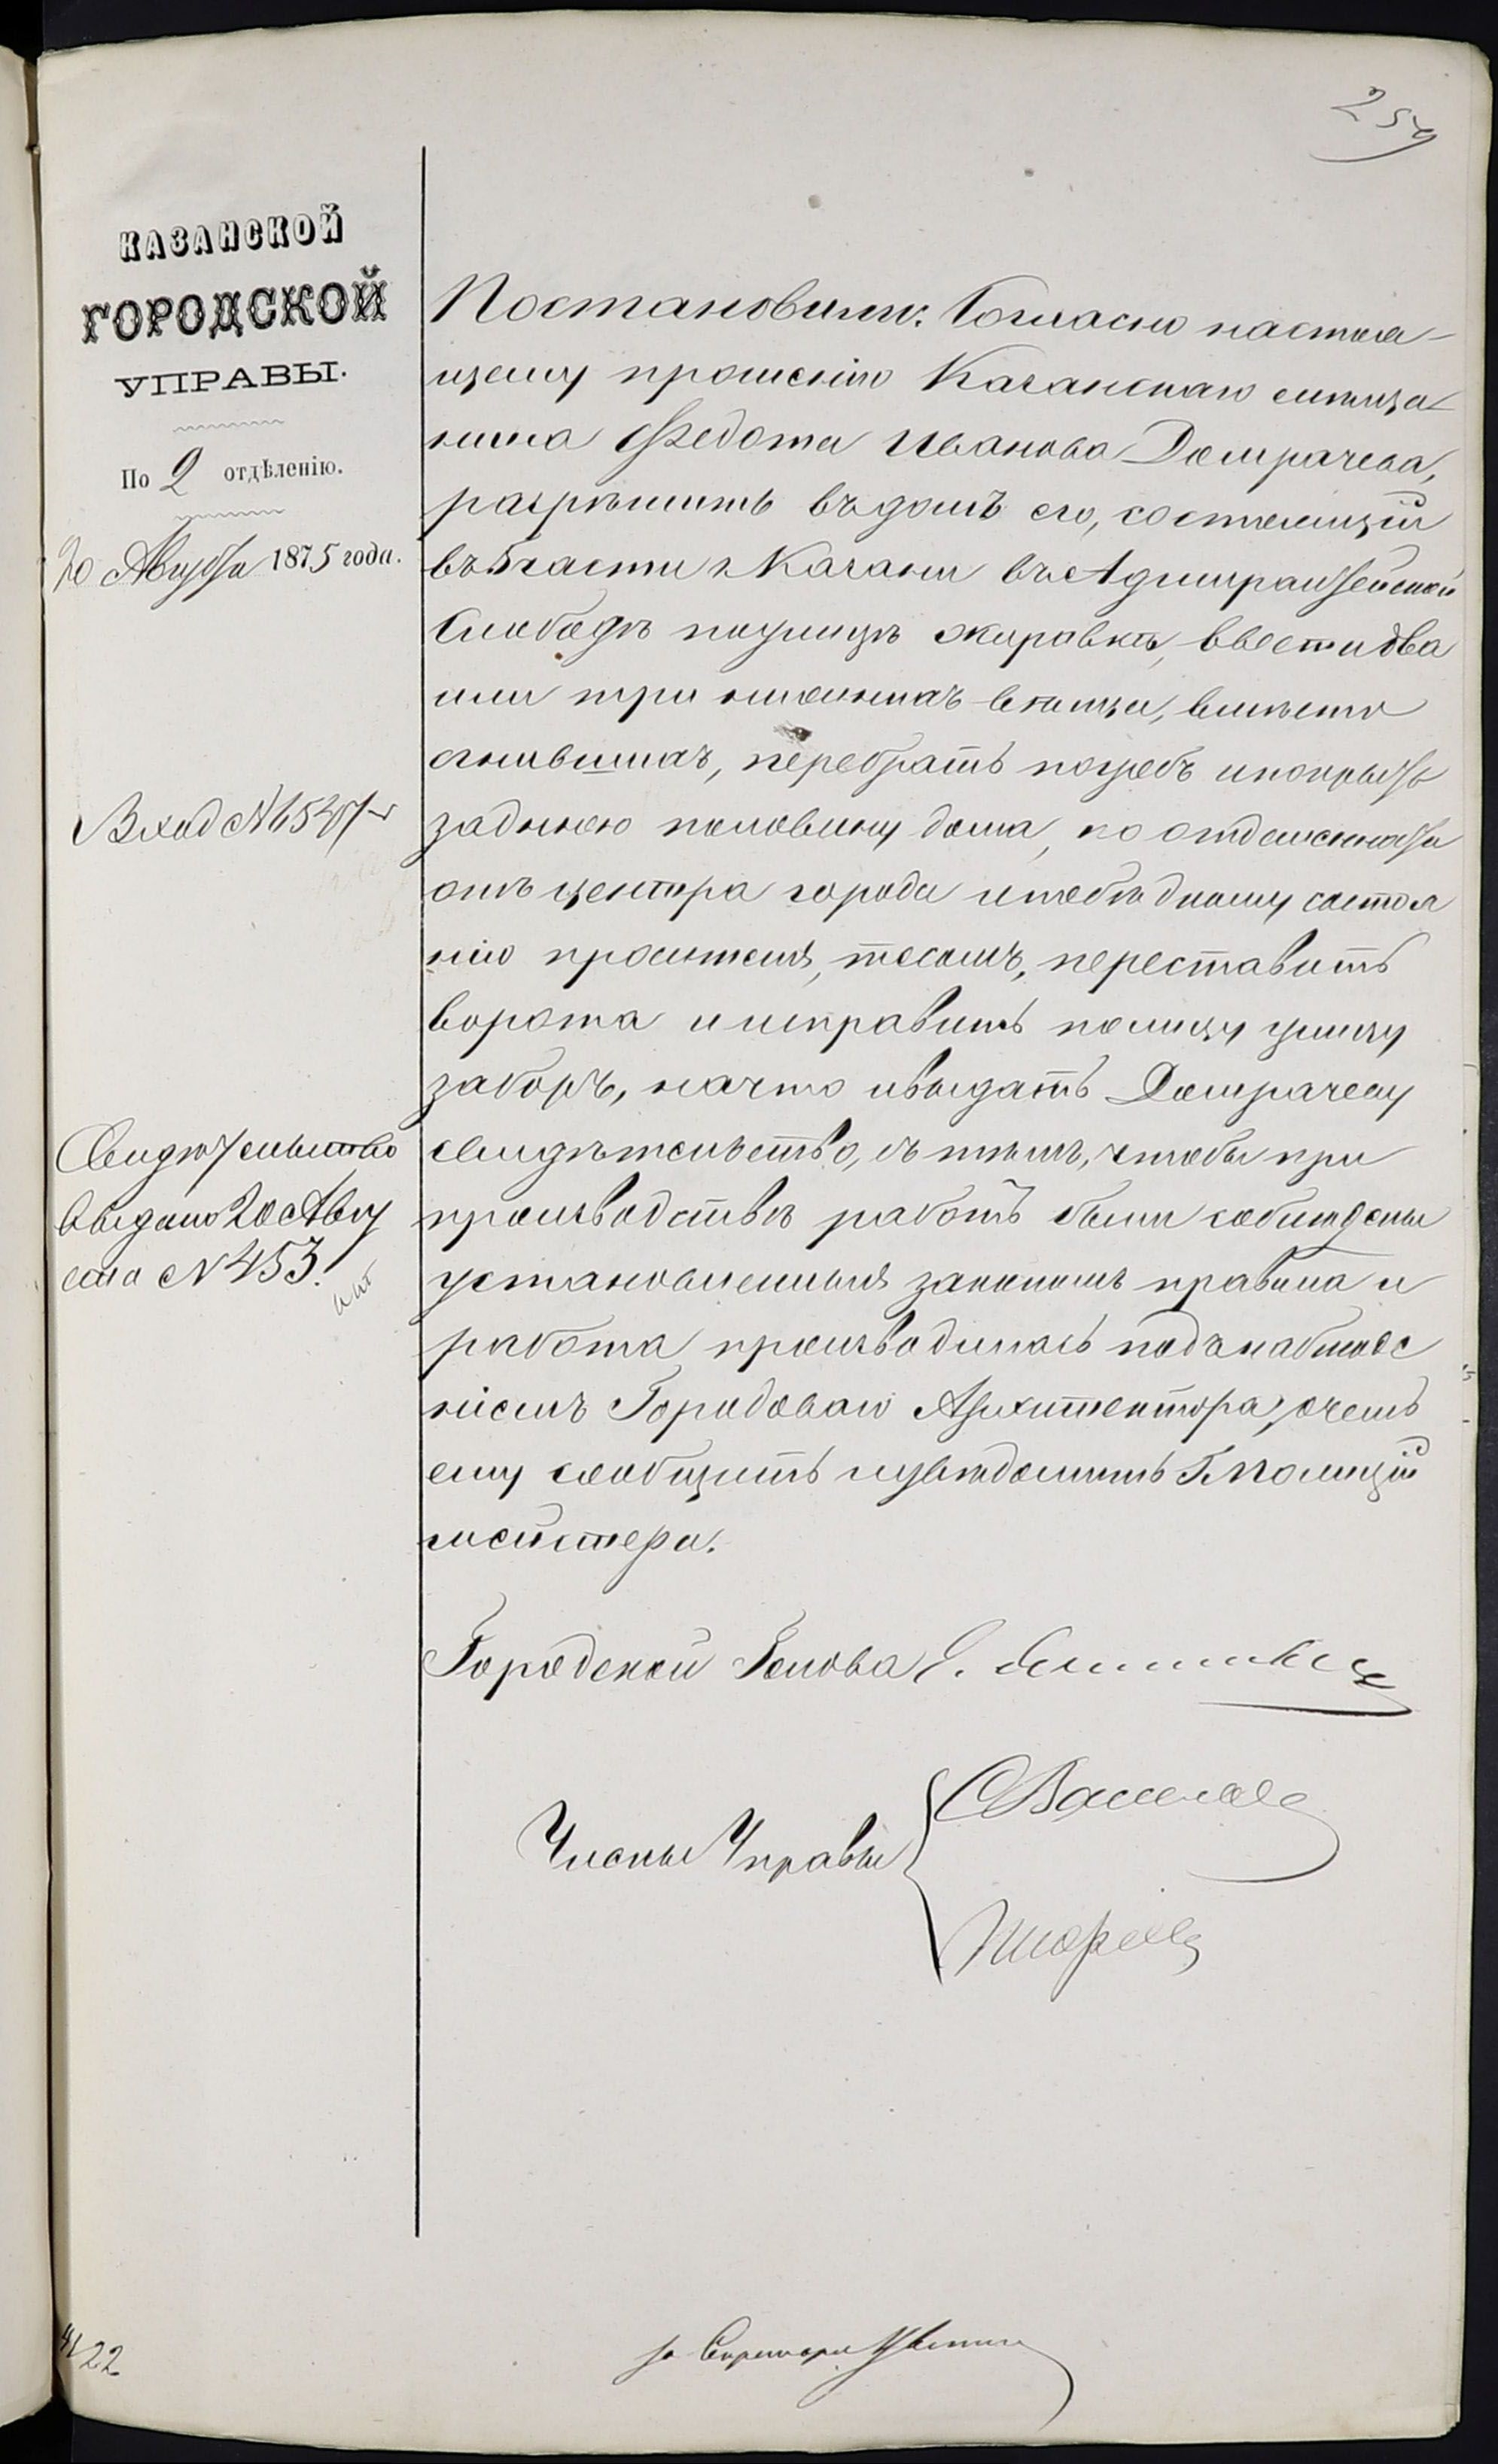 254
КАЗАНСКОЙ
ГОРОДСКОЙ
УПРАВЫ.
По 2 отдѣленію.
20 Августа 1875 года.
Вход № 6547
Свидѣтельство
выдано 20 Авгу
ста № 453.
Постановили: Согласно настоя-
щему прошенію Казанскаго мѣща-
нина Федота Иванова Домрачева,
разрѣшить въ домѣ его, состоящій
въ 5 части г. Казани въ Адмиралтейской
Слободѣ по улицѣ Жировкѣ, ввести два
или три нижнихъ венца, вмѣсто
сгнившихъ, перебрать погребъ и покрыть
заднюю половину дома, по отдаленности
отъ центра города и по бѣдному состоя
нію просителя, тесомъ, переставить
ворота и исправить по лицу улицы
заборъ, на что и выдать Домрачеву
свидѣтельство, съ тѣмъ, чтобы при
производствѣ работъ были соблюдены
установленныя закономъ правила и
работа производилась подъ наблюде
ніемъ Городоваго Архитектора, о чемъ
ему сообщить и увѣдомить Г. Полицій
мейстера.
Городской Голова
Члены Управы
За Секретаря
22